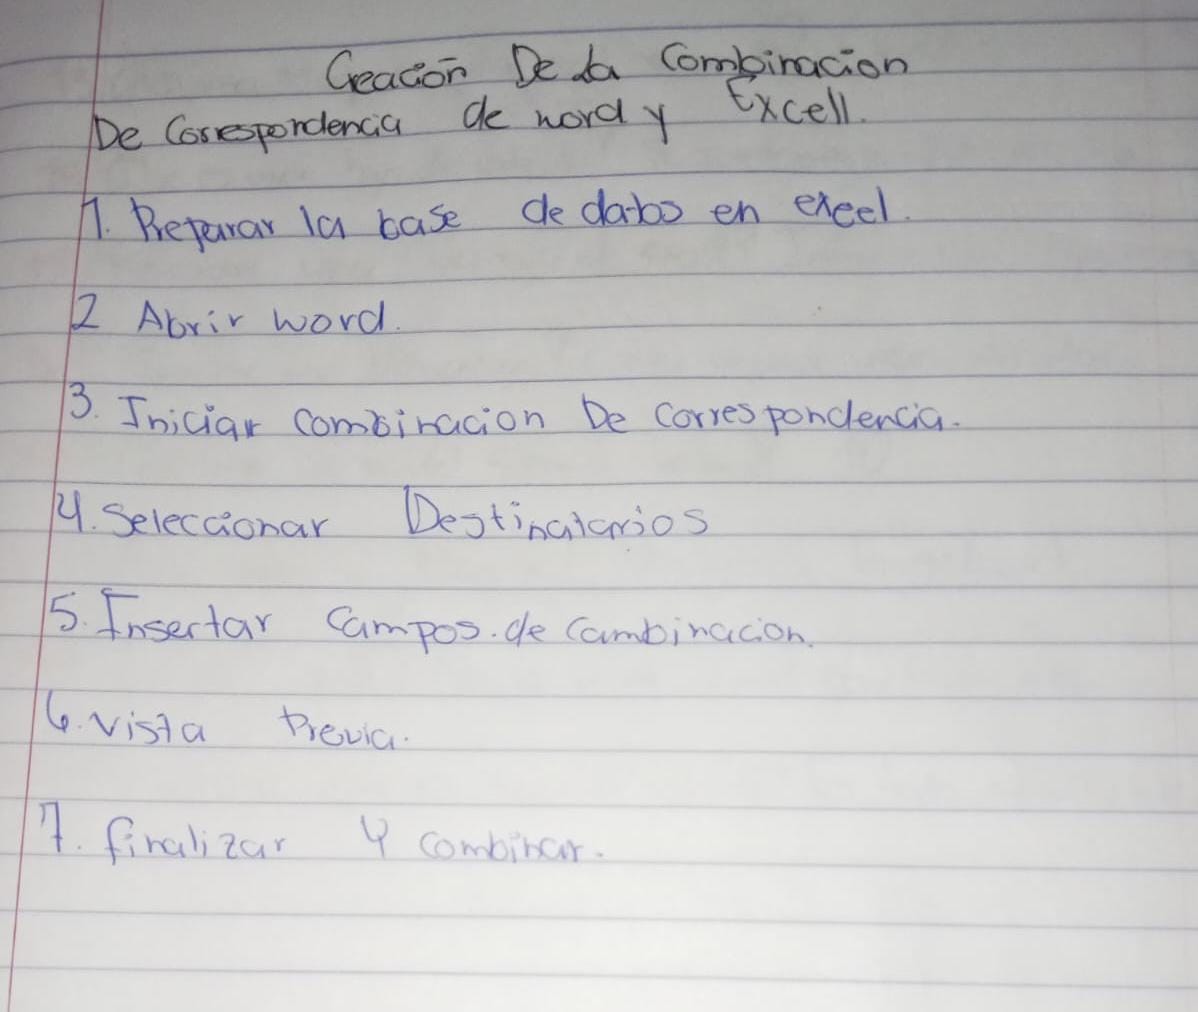 Creación De la Combinacion
De Correspondencia de word y Excell.
1. Preparar la base de datos en excel.
2 Abrir word.
3. Iniciar combinacion De correspondencia.
4. Seleccionar Destinatarios
5. Insertar Campos. de Cambinacion.
6. vista Previa.
7. finalizar y combinar.